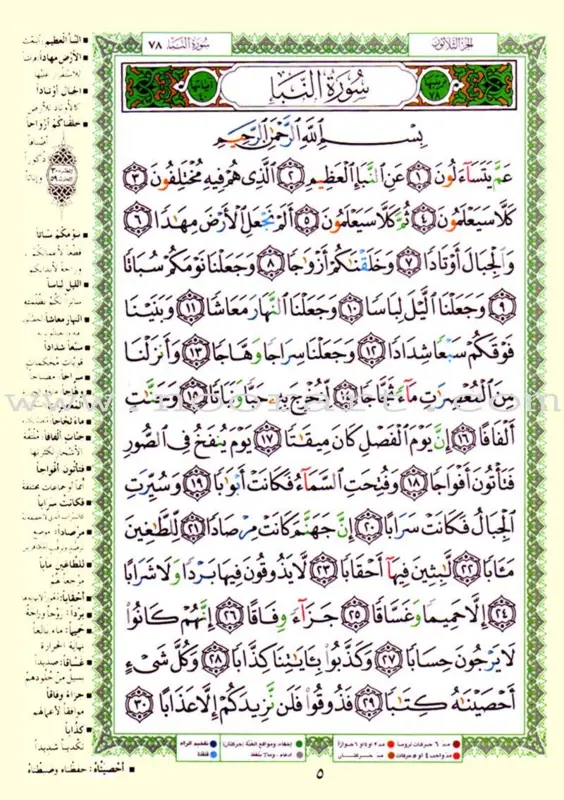 الجزء الثلاثون
سورة النبأ ٧٨
سُورَةُ النَّبَإِ
بِسْمِ اللَّهِ الرَّحْمَٰنِ الرَّحِيمِ
عَمَّ يَتَسَآءَلُونَ ١ عَنِ ٱلنَّبَإِ ٱلْعَظِيمِ ٢ ٱلَّذِى هُمْ فِيهِ مُخْتَلِفُونَ ٣
كَلَّا سَيَعْلَمُونَ ٤ ثُمَّ كَلَّا سَيَعْلَمُونَ ٥ أَلَمْ نَجْعَلِ ٱلْأَرْضَ مِهَٰدًا ٦
وَٱلْجِبَالَ أَوْتَادًا ٧ وَخَلَقْنَٰكُمْ أَزْوَٰجًا ٨ وَجَعَلْنَا نَوْمَكُمْ سُبَاتًا
٩ وَجَعَلْنَا ٱلَّيْلَ لِبَاسًا ١٠ وَجَعَلْنَا ٱلنَّهَارَ مَعَاشًا ١١ وَبَنَيْنَا
فَوْقَكُمْ سَبْعًا شِدَادًا ١٢ وَجَعَلْنَا سِرَاجًا وَهَّاجًا ١٣ وَأَنزَلْنَا
مِنَ ٱلْمُعْصِرَٰتِ مَآءً ثَجَّاجًا ١٤ لِّنُخْرِجَ بِهِۦ حَبًّا وَنَبَاتًا ١٥ وَجَنَّٰتٍ
أَلْفَافًا ١٦ إِنَّ يَوْمَ ٱلْفَصْلِ كَانَ مِيقَٰتًا ١٧ يَوْمَ يُنفَخُ فِى ٱلصُّورِ
فَتَأْتُونَ أَفْوَاجًا ١٨ وَفُتِحَتِ ٱلسَّمَآءُ فَكَانَتْ أَبْوَٰبًا ١٩ وَسُيِّرَتِ
ٱلْجِبَالُ فَكَانَتْ سَرَابًا ٢٠ إِنَّ جَهَنَّمَ كَانَتْ مِرْصَادًا ٢١ لِّلطَّٰغِينَ
مَـَٔابًا ٢٢ لَّٰبِثِينَ فِيهَآ أَحْقَابًا ٢٣ لَّا يَذُوقُونَ فِيهَا بَرْدًا وَلَا شَرَابًا
٢٤ إِلَّا حَمِيمًا وَغَسَّاقًا ٢٥ جَزَآءً وِفَاقًا ٢٦ إِنَّهُمْ كَانُوا۟
لَا يَرْجُونَ حِسَابًا ٢٧ وَكَذَّبُوا۟ بِـَٔايَٰتِنَا كِذَّابًا ٢٨ وَكُلَّ شَىْءٍ
أَحْصَيْنَٰهُ كِتَٰبًا ٢٩ فَذُوقُوا۟ فَلَن نَّزِيدَكُمْ إِلَّا عَذَابًا ٣٠
النبأ العظيم
الأرض مهاداً
الجبال أوتاداً
خلقناكم أزواجاً
نومكم سباتاً
الليل لباساً
النهار معاشاً
سبعاً شداداً
ماء ثجاجاً
جنات ألفافاً
فتأتون أفواجاً
فكانت سراباً
مرصاداً
للطاغين مآباً
أحقاباً
برداً
حميماً
غساقاً
جزاء وفاقاً
كذاباً
أحصيناه: حفظناه وضبطناه
٥